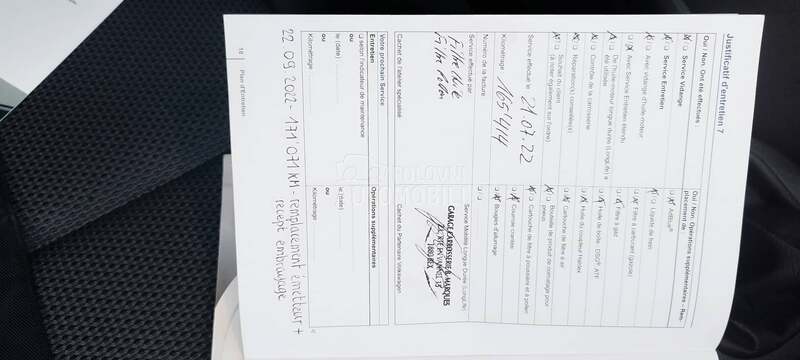 Justificatif d'entretien 7
Oui / Non Ont été effectués
Service Vidange
Service Entretien
Avec vidange d'huile-moteur
Avec Service Entretien étendu
De l'huile-moteur longue durée (LongLife) a été utilisée
Contrôle de la carrosserie
Réparation(s) conseillée(s)
Souhait du client
(à noter également sur l'ordre)
Service effectué le 21.07.22
Kilométrage 165'414
Numéro de la facture
Service effectué par
Cachet de l'atelier spécialisé
Votre prochain Service
Entretien
selon l'indicateur de maintenance
ou
le (date)
ou
Kilométrage
Oui / Non Opérations supplémentaires - Remplacement de
AdBlue®
Liquide de frein
Filtre à carburant (gazole)
Filtre à gaz
Huile de boîte DSG® ATF
Huile du coupleur Haldex
Cartouche de filtre à air
Bouteille de produit de colmatage pour pneus
Cartouche de filtre à poussière et à pollen
Courroie crantée
Bougies d'allumage
Service Mobilité Longue Durée (LongLife)
1880 BEX
Cachet du Partenaire Volkswagen
Opérations supplémentaires
le (date)
ou
Kilométrage
22 09 2022 - 171'071 KM - remplacement émetteur +
récept embrayage
18 Plan d'Entretien